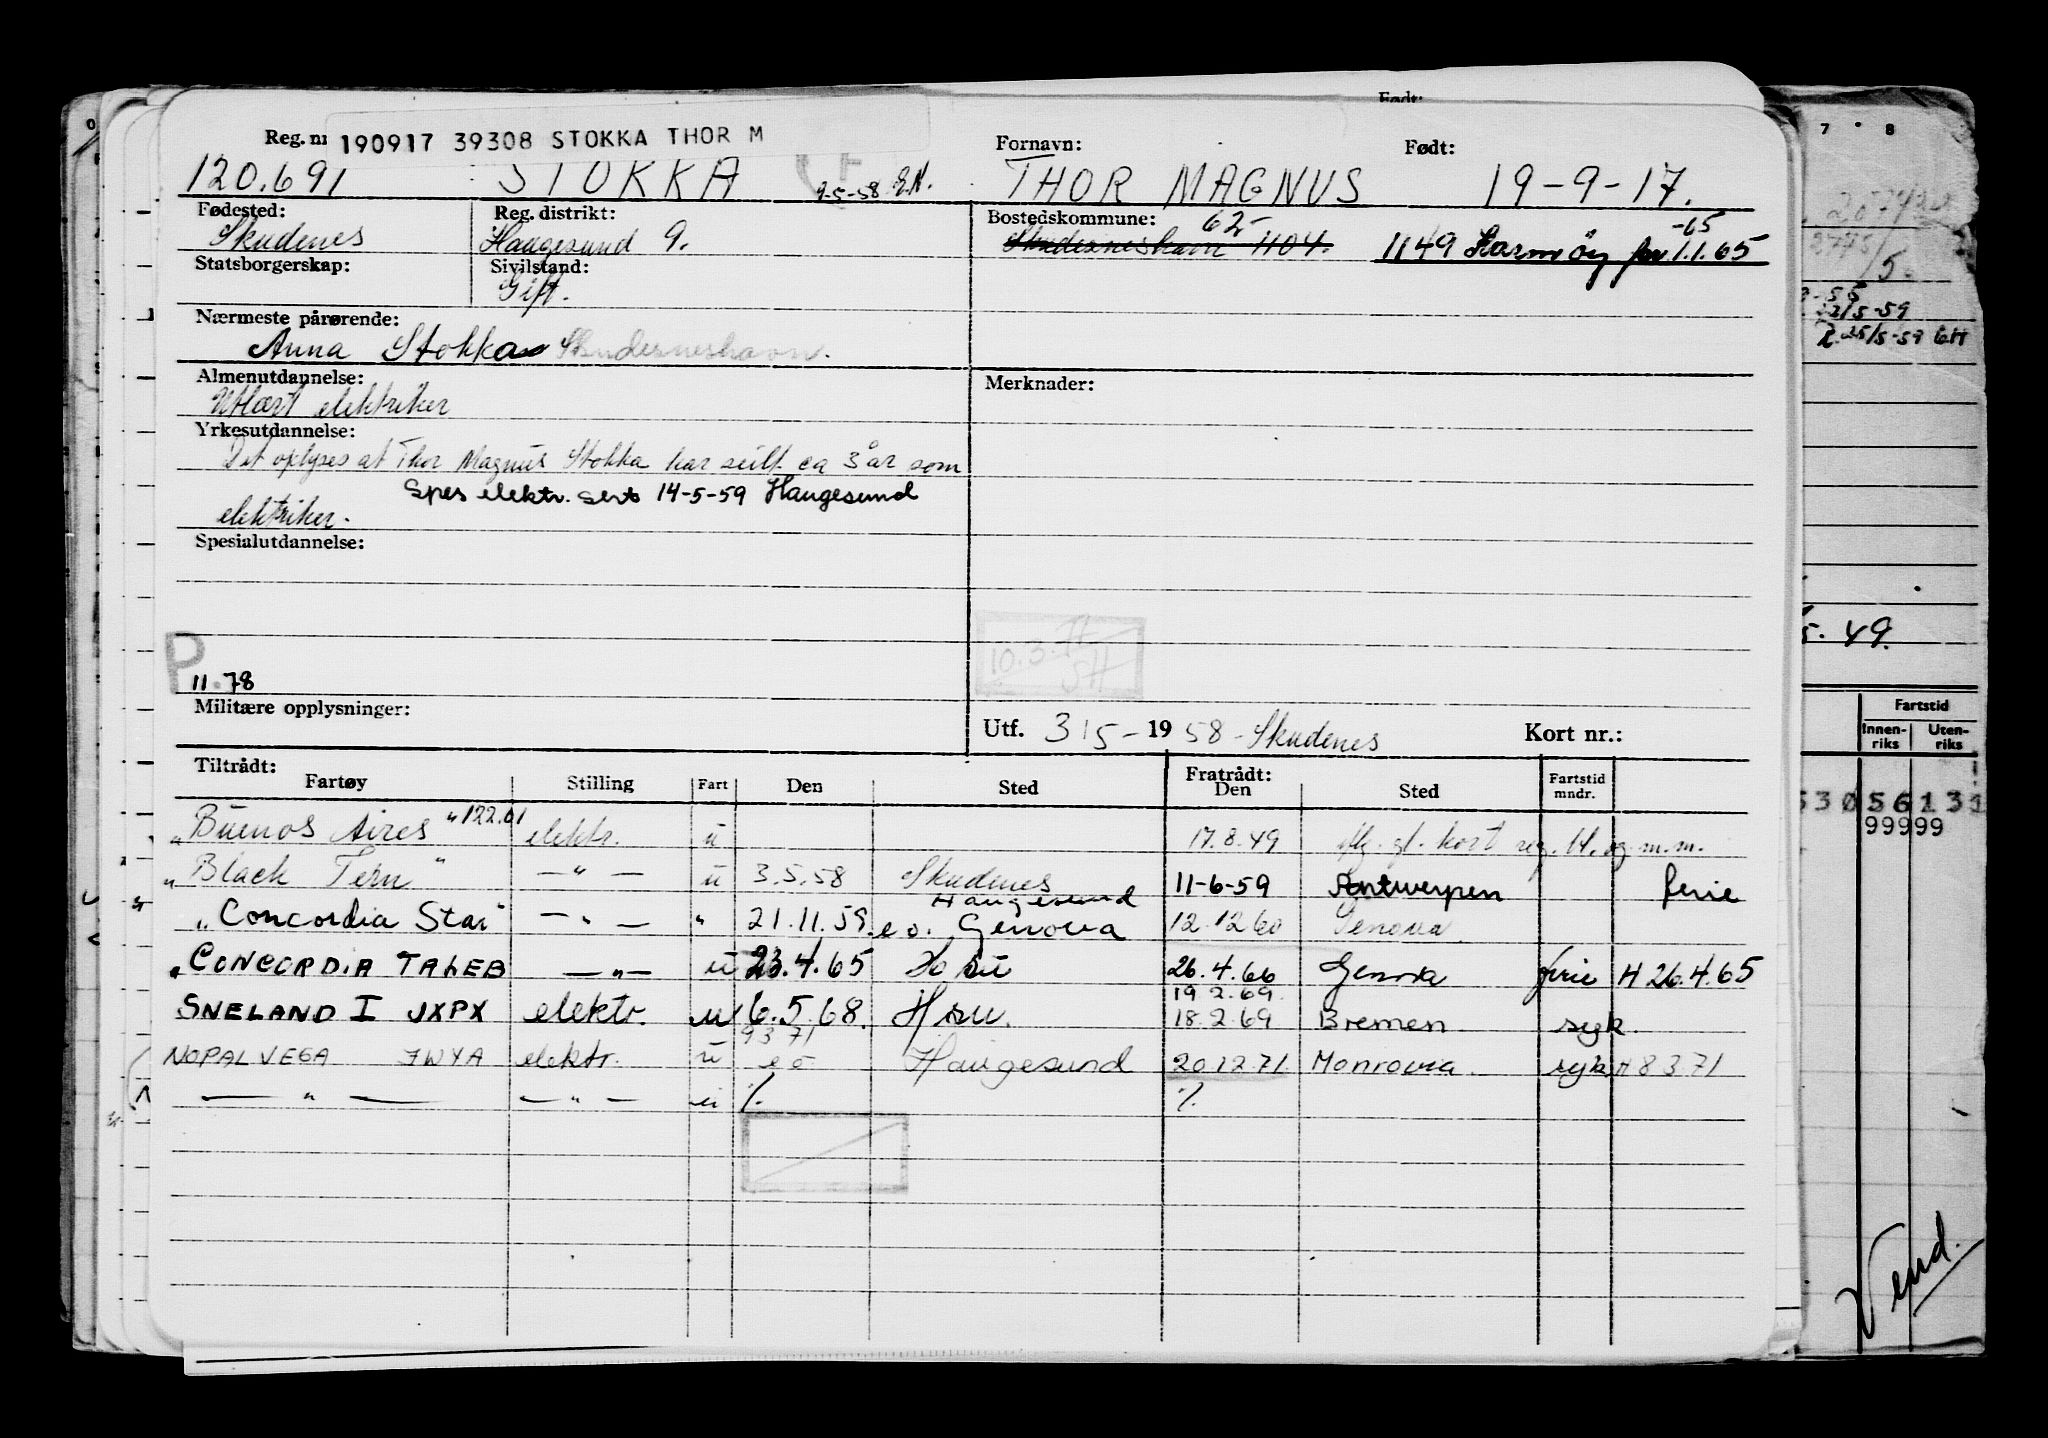 Født:
Reg. nr 190917 39308 STOKKA THOR M
Fornavn: Født:
120.691 STOKKA 9-5-58 E.N. THOR MAGNUS 19-9-17.
Fødested: Reg. distrikt: Bostedskommune: 62- -65
Skudenes Haugesund 9. Skudesneshavn 1104. 1149 Karmøy fra 1.1.65
Statsborgerskap: Sivilstand:
Gift.
Nærmeste pårørende:
Anna Stokka Skudesneshavn.
Almenutdannelse: Merknader:
Utlært elektriker
Yrkesutdannelse:
Det oplyses at Thor Magnus Stokka har seilt ca 3 år som
Spes elektr. sert 14-5-59 Haugesund
elektriker.
Spesialutdannelse:
P
10.3.72
SH
11.78
Militære opplysninger:
Utf. 3/5- 1958 - Skudenes Kort nr.:
Tiltrådt: Fratrådt:
Fartøy Stilling Fart Den Sted Den Sted Fartstid mndr.
"Buenos Aires" 122.01 elektr. u 17.8.49 iflg. gl. kort reg. bl. og m.m.
"Black Tern" — " — u 3.5.58 Skudenes 11-6-59 Antwerpen ferie
Haugesund
"Concordia Star" — " — " 21.11.59. e.o. Genova 12.12.60 Genova
"CONCORDIA TALEB — " — u 23.4.65 Hsu 26.4.66 Genova ferie H 26.4.65
19 2.69.
SNELAND I JXPX elektr. u 6.5.68. Hsu. 18.2.69 Bremen syk.
9 3 71
NOPAL VEGA JWYA elektr. u e o Haugesund 20.12.71. Monrovia. syk H 8 3.71
— " — — " — u %. %.
7 8
5.
22/5-59
25/5-59 GH
5.49.
Fartstid
Innenriks Utenriks
53056131
99999
Vend.